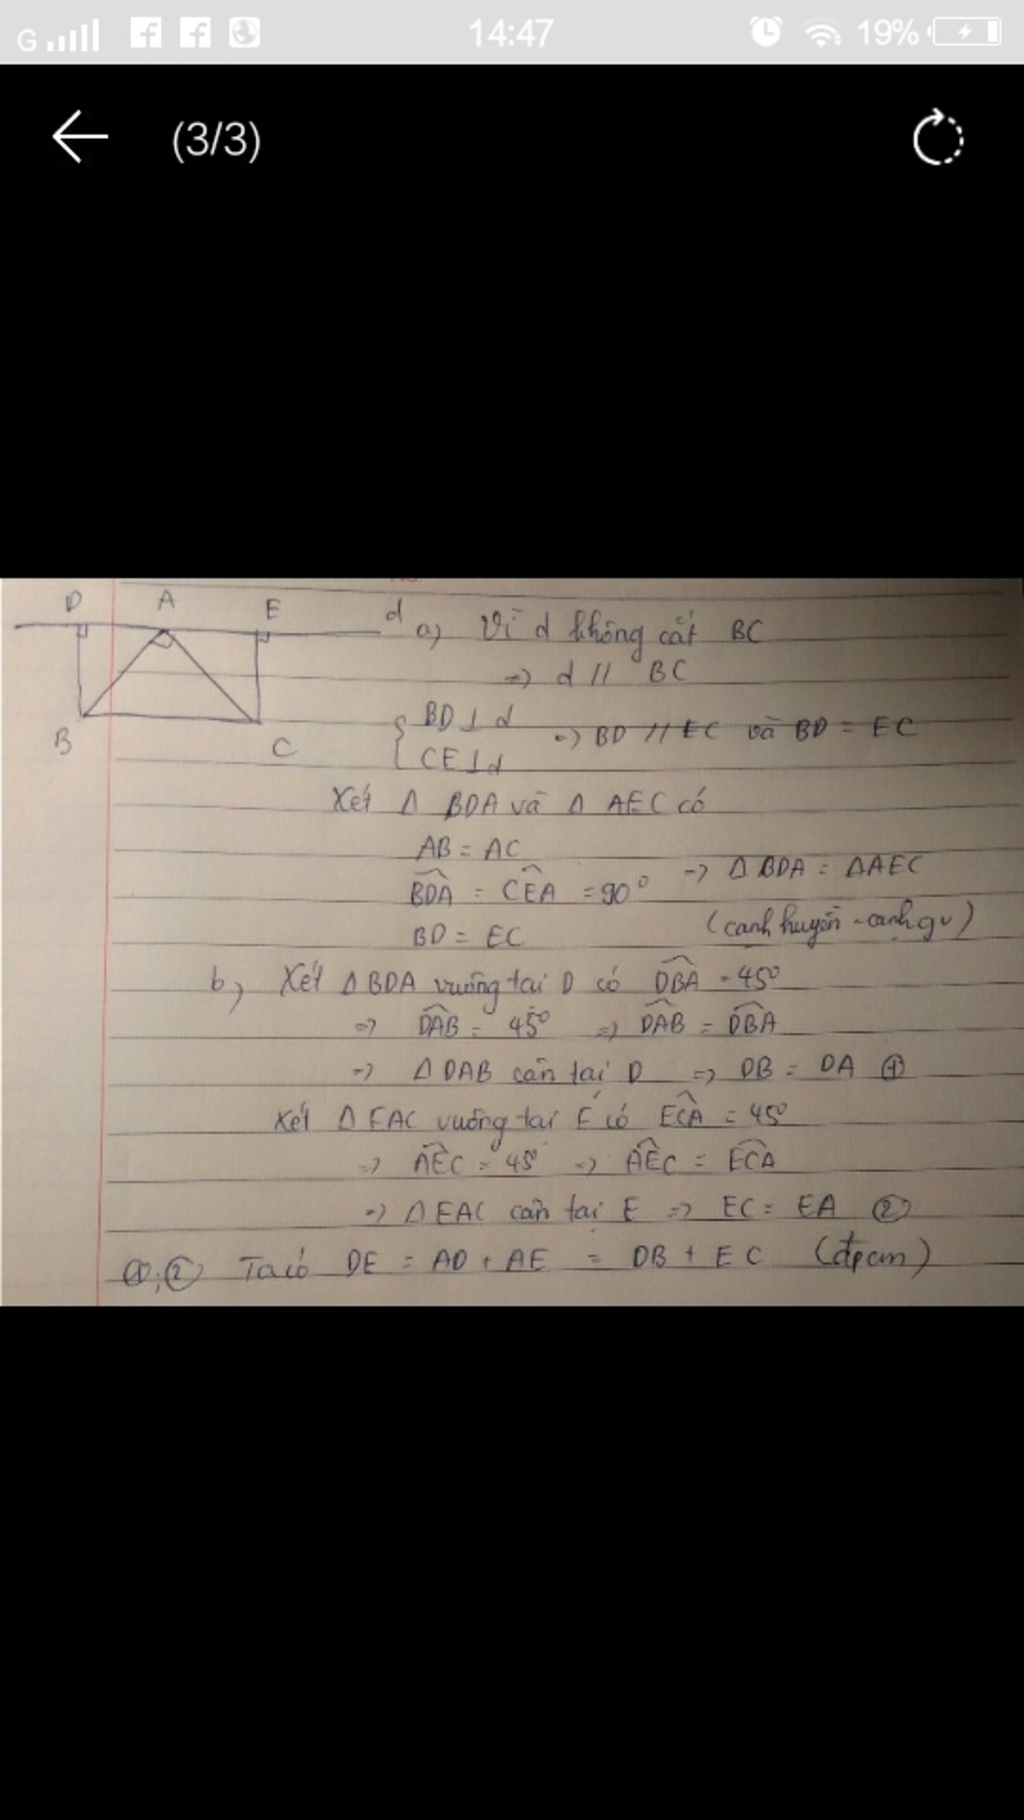 G 14:47 19%
(3/3)
D A E d
B C
a) Vì d không cắt BC
=> d // BC
BD ⊥ d
CE ⊥ d
=> BD // EC và BD = EC
Xét Δ BDA và Δ AEC có
AB = AC
BDA = CEA = 90°
BD = EC
=> Δ BDA = Δ AEC
(cạnh huyền - cạnh gv)
b, Xét Δ BDA vuông tại D có DBA = 45°
=> DAB = 45° => DAB = DBA
=> Δ DAB cân tại D => DB = DA ①
Xét Δ EAC vuông tại E có ECA = 45°
=> AEC = 45° => AEC = ECA
=> Δ EAC cân tại E => EC = EA ②
①,② Ta có DE = AD + AE = DB + EC (đpcm)